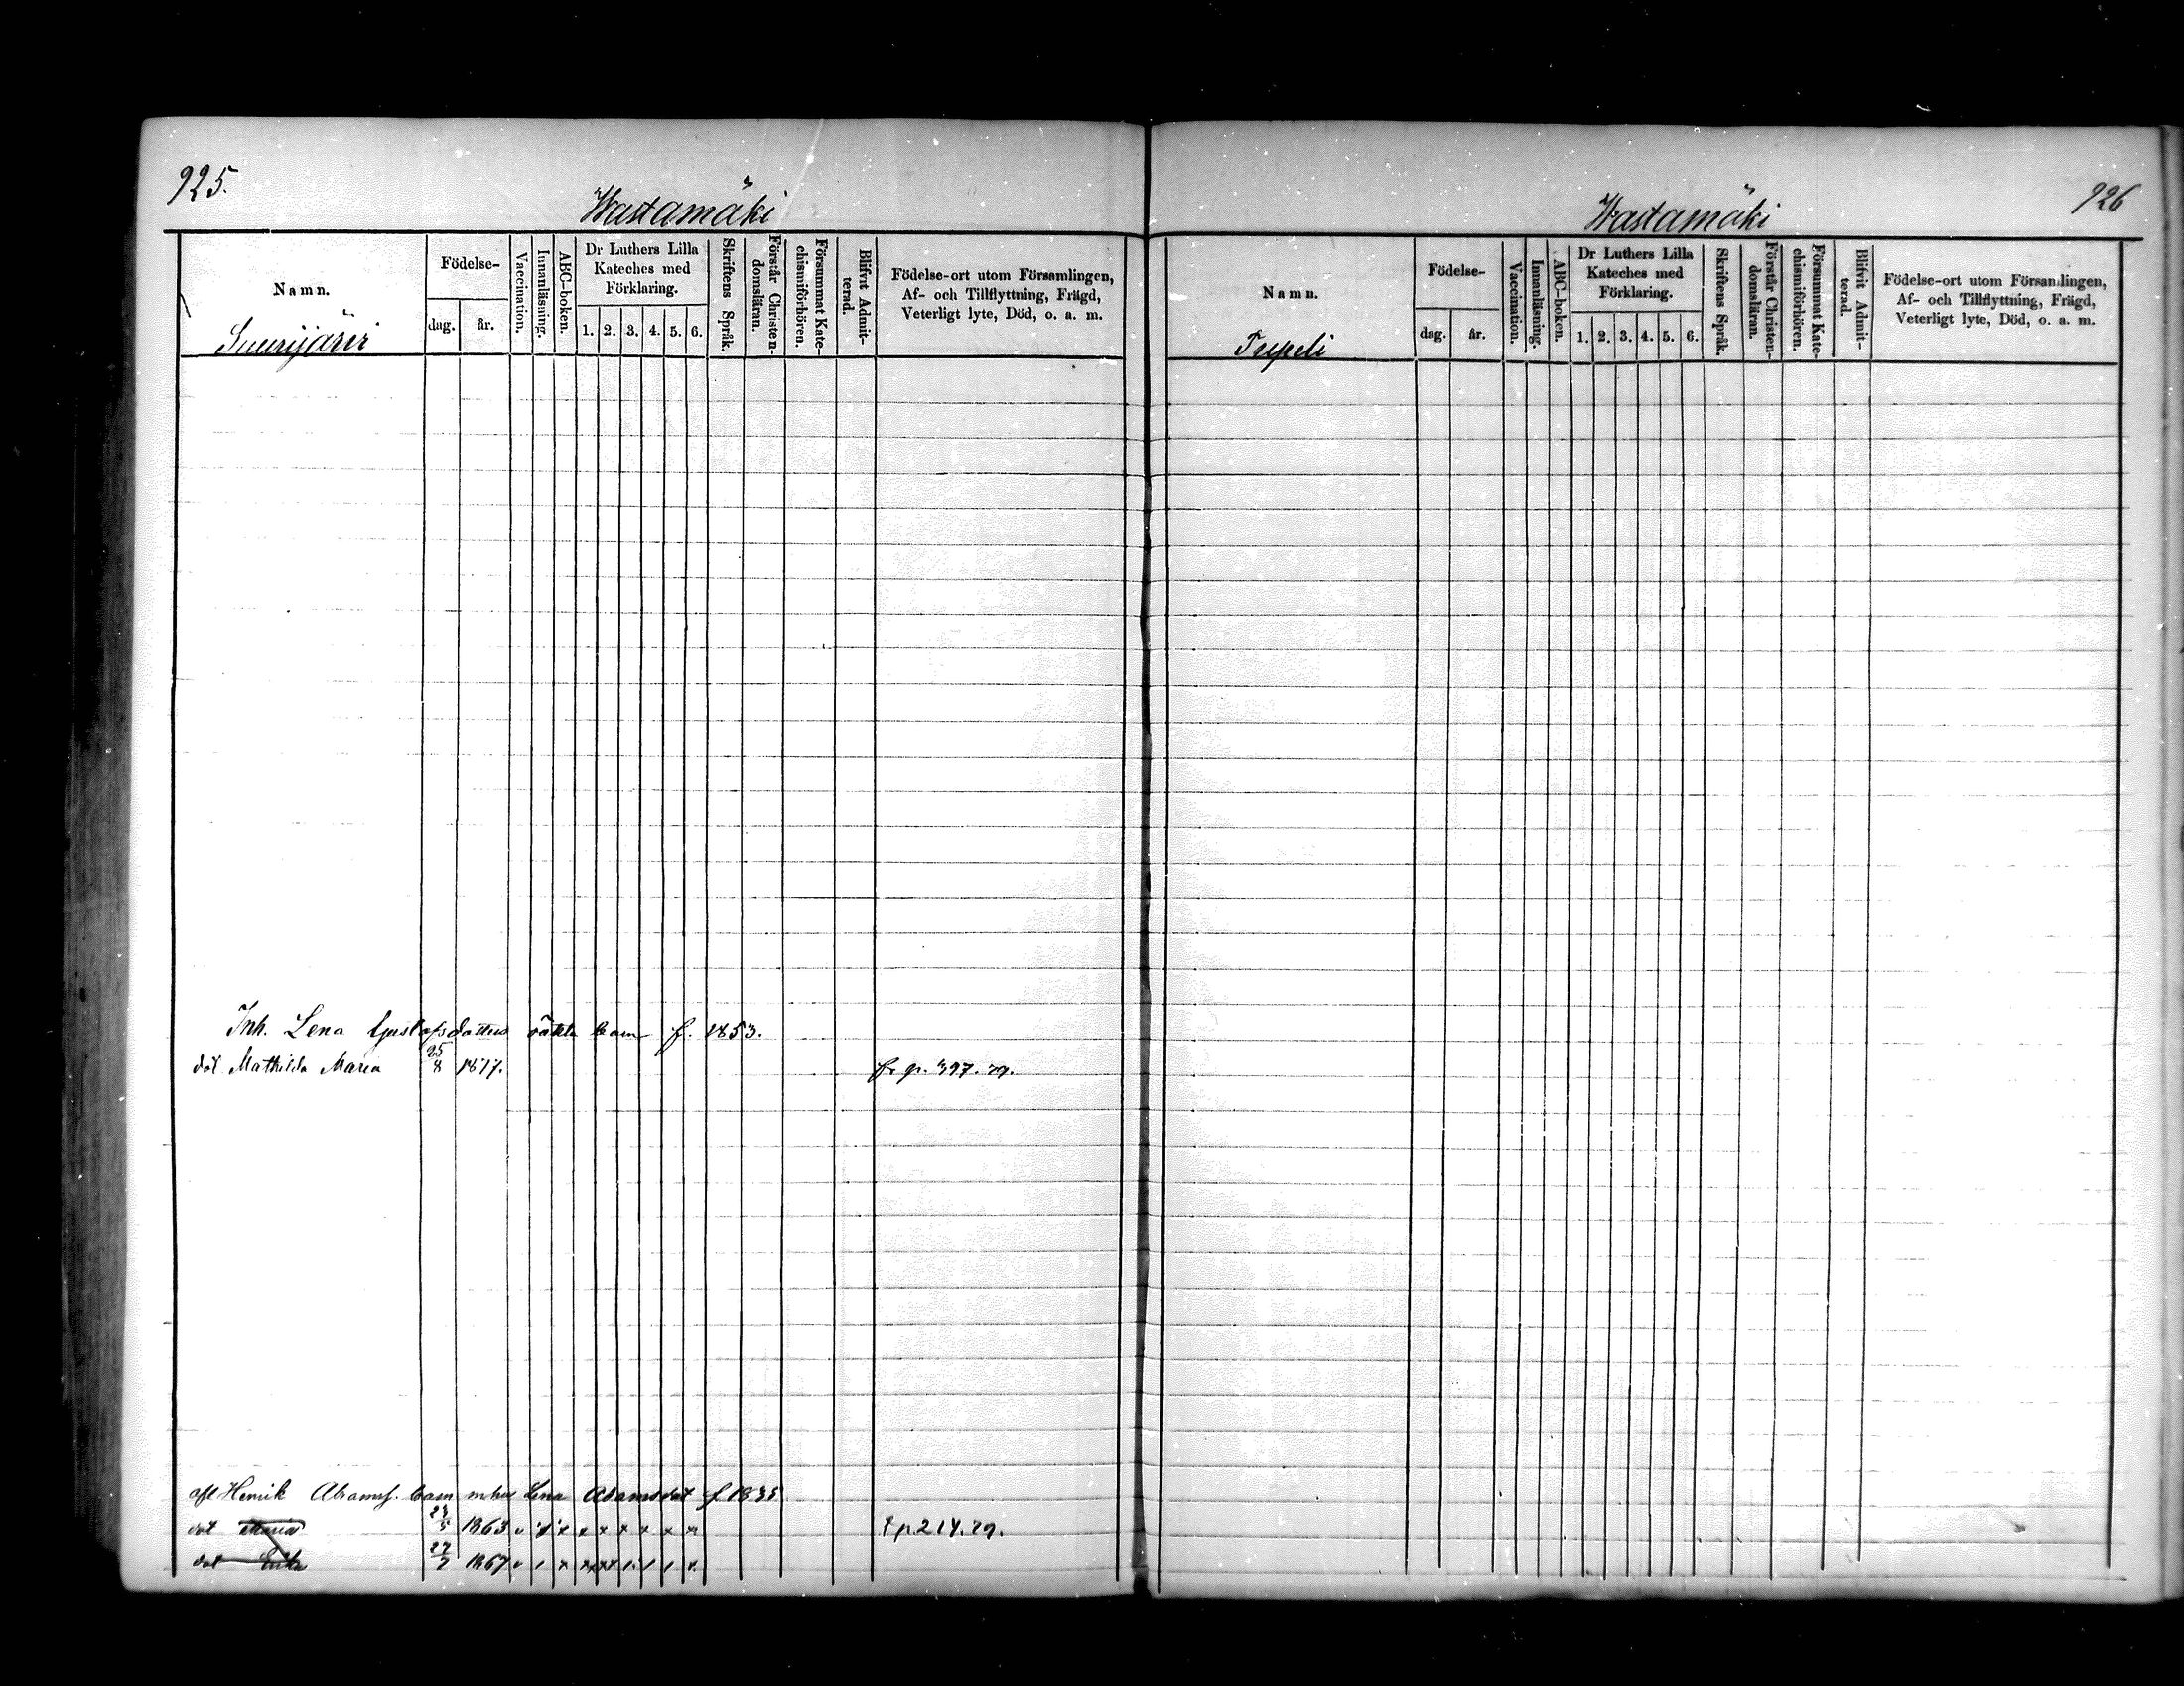 925.
Wastamäki
Namn.
Födelse-
dag.
år.
Vaccination.
Innanläsning.
ABC-boken.
Dr Luthers Lilla
Kateches med
Förklaring.
1. 2. 3. 4. 5. 6.
Skriftens Språk.
Förstår Christen-
domsläran.
Försummat Kate-
chismiförhören.
Blifvit Admit-
terad.
Födelse-ort utom Församlingen,
Af- och Tillflyttning, Frägd,
Veterligt lyte, Död, o. a. m.
Suurijärvi
Inh. Lena Gustafsdotters oäkta barn f. 1853.
dot Mathilda Maria 25/8 1877. fr p. 397. 79.
afl Henrik Abramss. barn m. hu Lena Adamsdot f 1835
dot Maria 1863 t p 214. 79.
dot Erika 27/7 1867
926
Wastamäki
Namn.
Födelse-
dag.
år.
Vaccination.
Innanläsning.
ABC-boken.
Dr Luthers Lilla
Kateches med
Förklaring.
1. 2. 3. 4. 5. 6.
Skriftens Språk.
Förstår Christen-
domsläran.
Försummat Kate-
chismiförhören.
Blifvit Admit-
terad.
Födelse-ort utom Församlingen,
Af- och Tillflyttning, Frägd,
Veterligt lyte, Död, o. a. m.
Tupeli